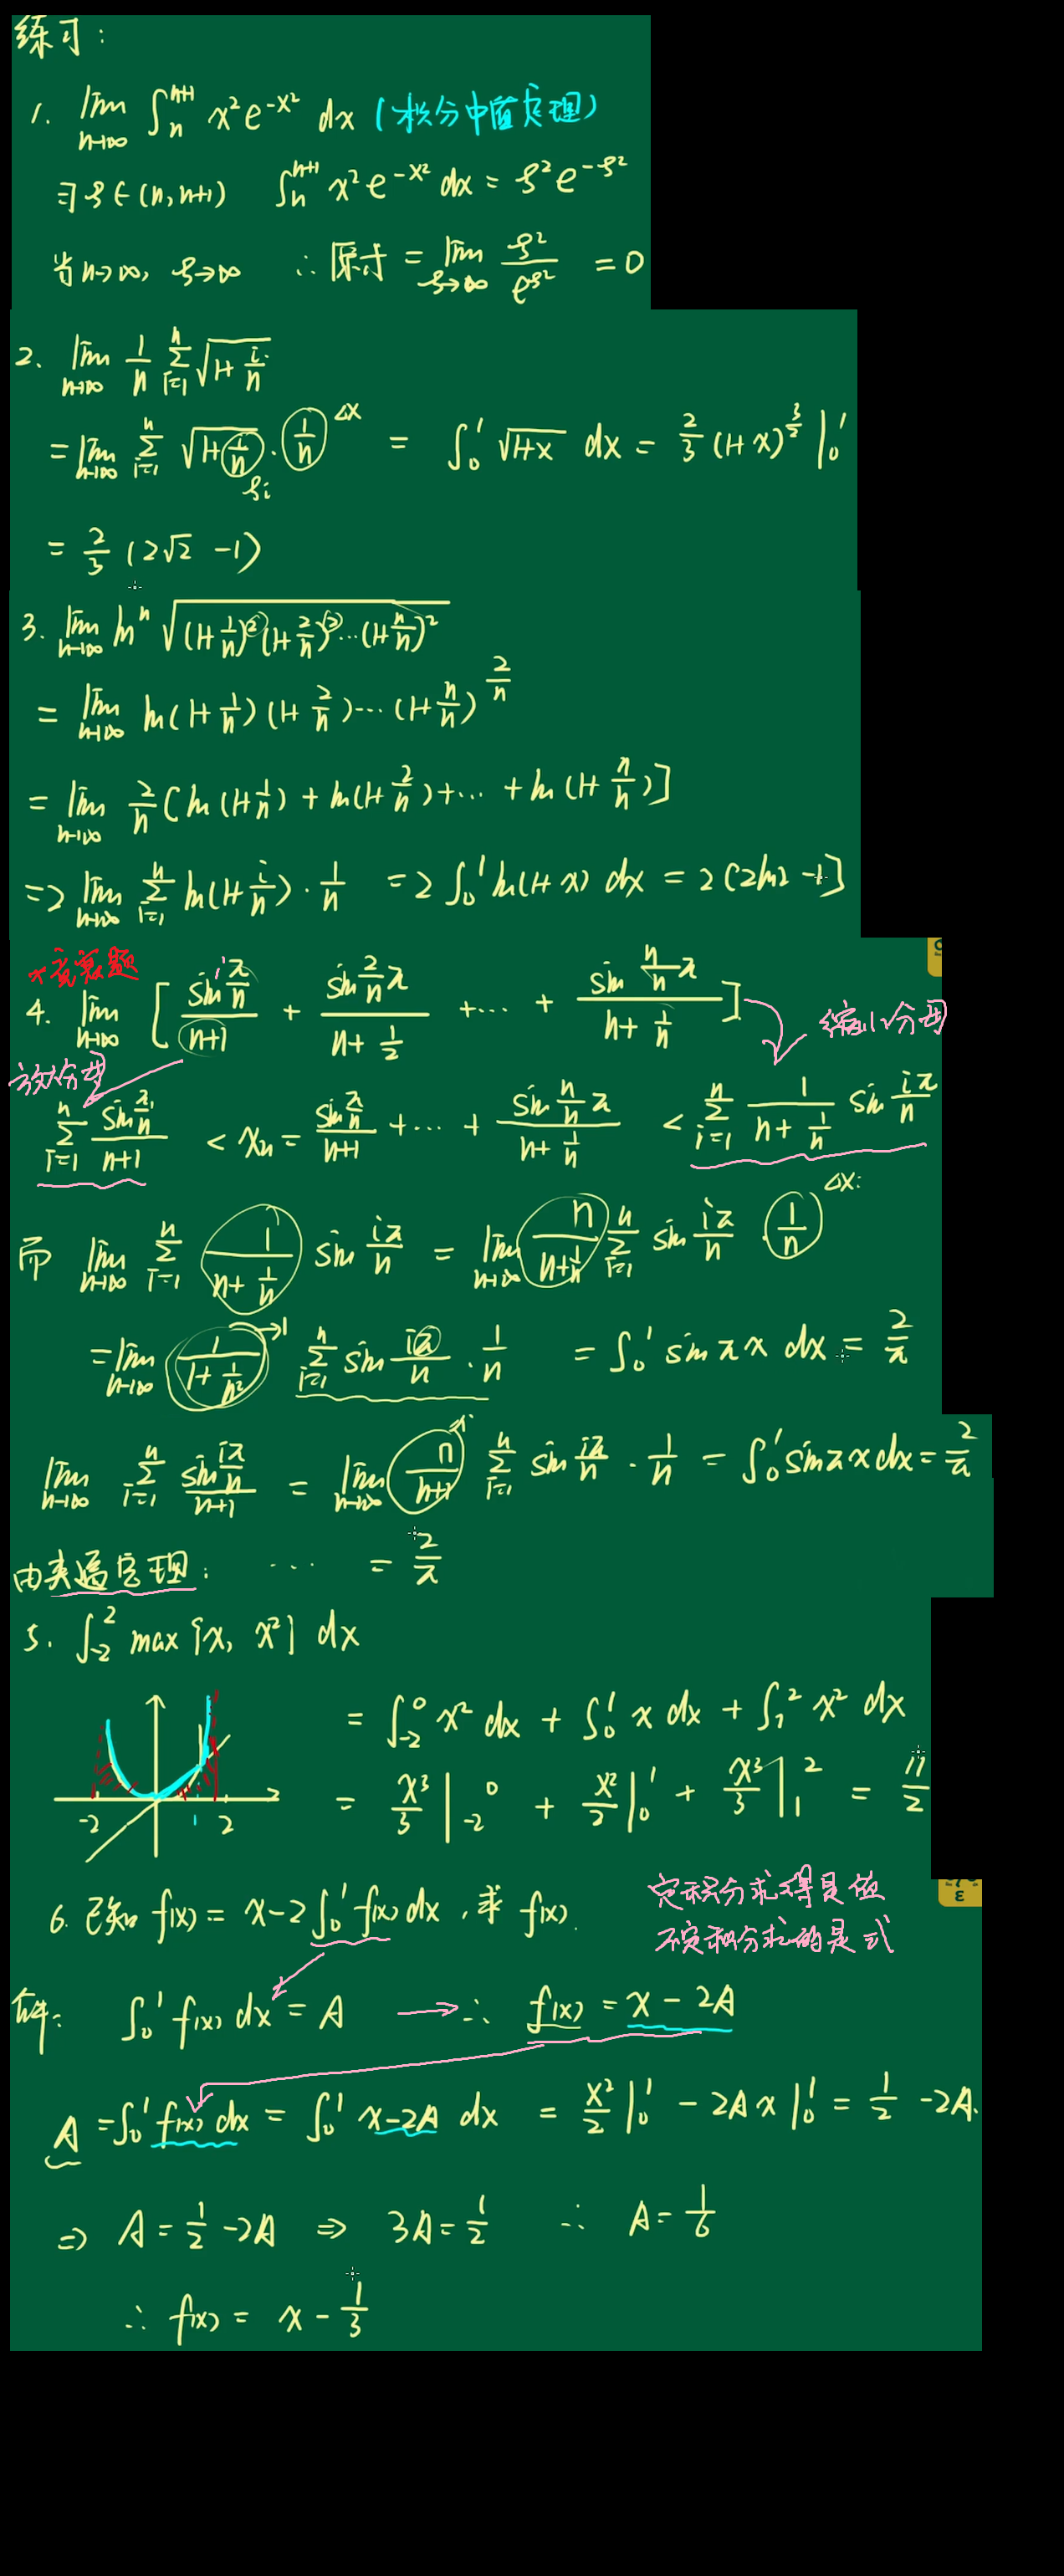 练习:
1. lim n→∞ ∫_n^{n+1} x²e^{-x²} dx (积分中值定理)
∃ξ∈(n,n+1) ∫_n^{n+1} x²e^{-x²} dx = ξ²e^{-ξ²}
当n→∞, ξ→∞ ∴ 原式 = lim ξ→∞ ξ²/e^{ξ²} = 0
2. lim n→∞ 1/n Σ_{i=1}^n √(1+i/n)
= lim n→∞ Σ_{i=1}^n √(1+i/n) · 1/n Δx = ∫_0^1 √(1+x) dx = 2/3 (1+x)^{3/2} |_0^1
ξi
= 2/3 (2√2 -1)
3. lim n→∞ ln ⁿ√((1+1/n)²(1+2/n)²…(1+n/n)²)
= lim n→∞ ln(1+1/n)(1+2/n)…(1+n/n)^{2/n}
= lim n→∞ 2/n [ln(1+1/n) + ln(1+2/n) + … + ln(1+n/n)]
= 2 lim n→∞ Σ_{i=1}^n ln(1+i/n) · 1/n = 2 ∫_0^1 ln(1+x) dx = 2[2ln2 -1]
竞赛题
4. lim n→∞ [ sin π/n / (n+1) + sin 2/n π / (n+1/2) + … + sin n/n π / (n+1/n) ] 缩小分母
放大分母
Σ_{i=1}^n sin π/n i / (n+1) < xₙ = sin π/n / (n+1) + … + sin n/n π / (n+1/n) < Σ_{i=1}^n 1/(n+1/n) sin iπ/n
而 lim n→∞ Σ_{i=1}^n 1/(n+1/n) sin iπ/n = lim n→∞ n/(n+1/n) Σ_{i=1}^n sin iπ/n · 1/n Δxi
= lim n→∞ 1/(1+1/n²) →1 Σ_{i=1}^n sin iπ/n · 1/n = ∫_0^1 sin πx dx = 2/π
lim n→∞ Σ_{i=1}^n sin iπ/n / (n+1) = lim n→∞ n/(n+1) Σ_{i=1}^n sin iπ/n · 1/n = ∫_0^1 sin πx dx = 2/π
由夹逼定理: … = 2/π
5. ∫_{-2}^2 max{x, x²} dx
= ∫_{-2}^0 x² dx + ∫_0^1 x dx + ∫_1^2 x² dx
-2 1 2
= x³/3 |_{-2}^0 + x²/2 |_0^1 + x³/3 |_1^2 = 11/2
6. 已知 f(x) = x-2∫_0^1 f(x) dx, 求 f(x).
定积分求得是值
不定积分求的是式
解: ∫_0^1 f(x) dx = A → ∴ f(x) = x - 2A
A = ∫_0^1 f(x) dx = ∫_0^1 x-2A dx = x²/2 |_0^1 - 2Ax |_0^1 = 1/2 - 2A.
⇒ A = 1/2 - 2A ⇒ 3A = 1/2 ∴ A = 1/6
∴ f(x) = x - 1/3